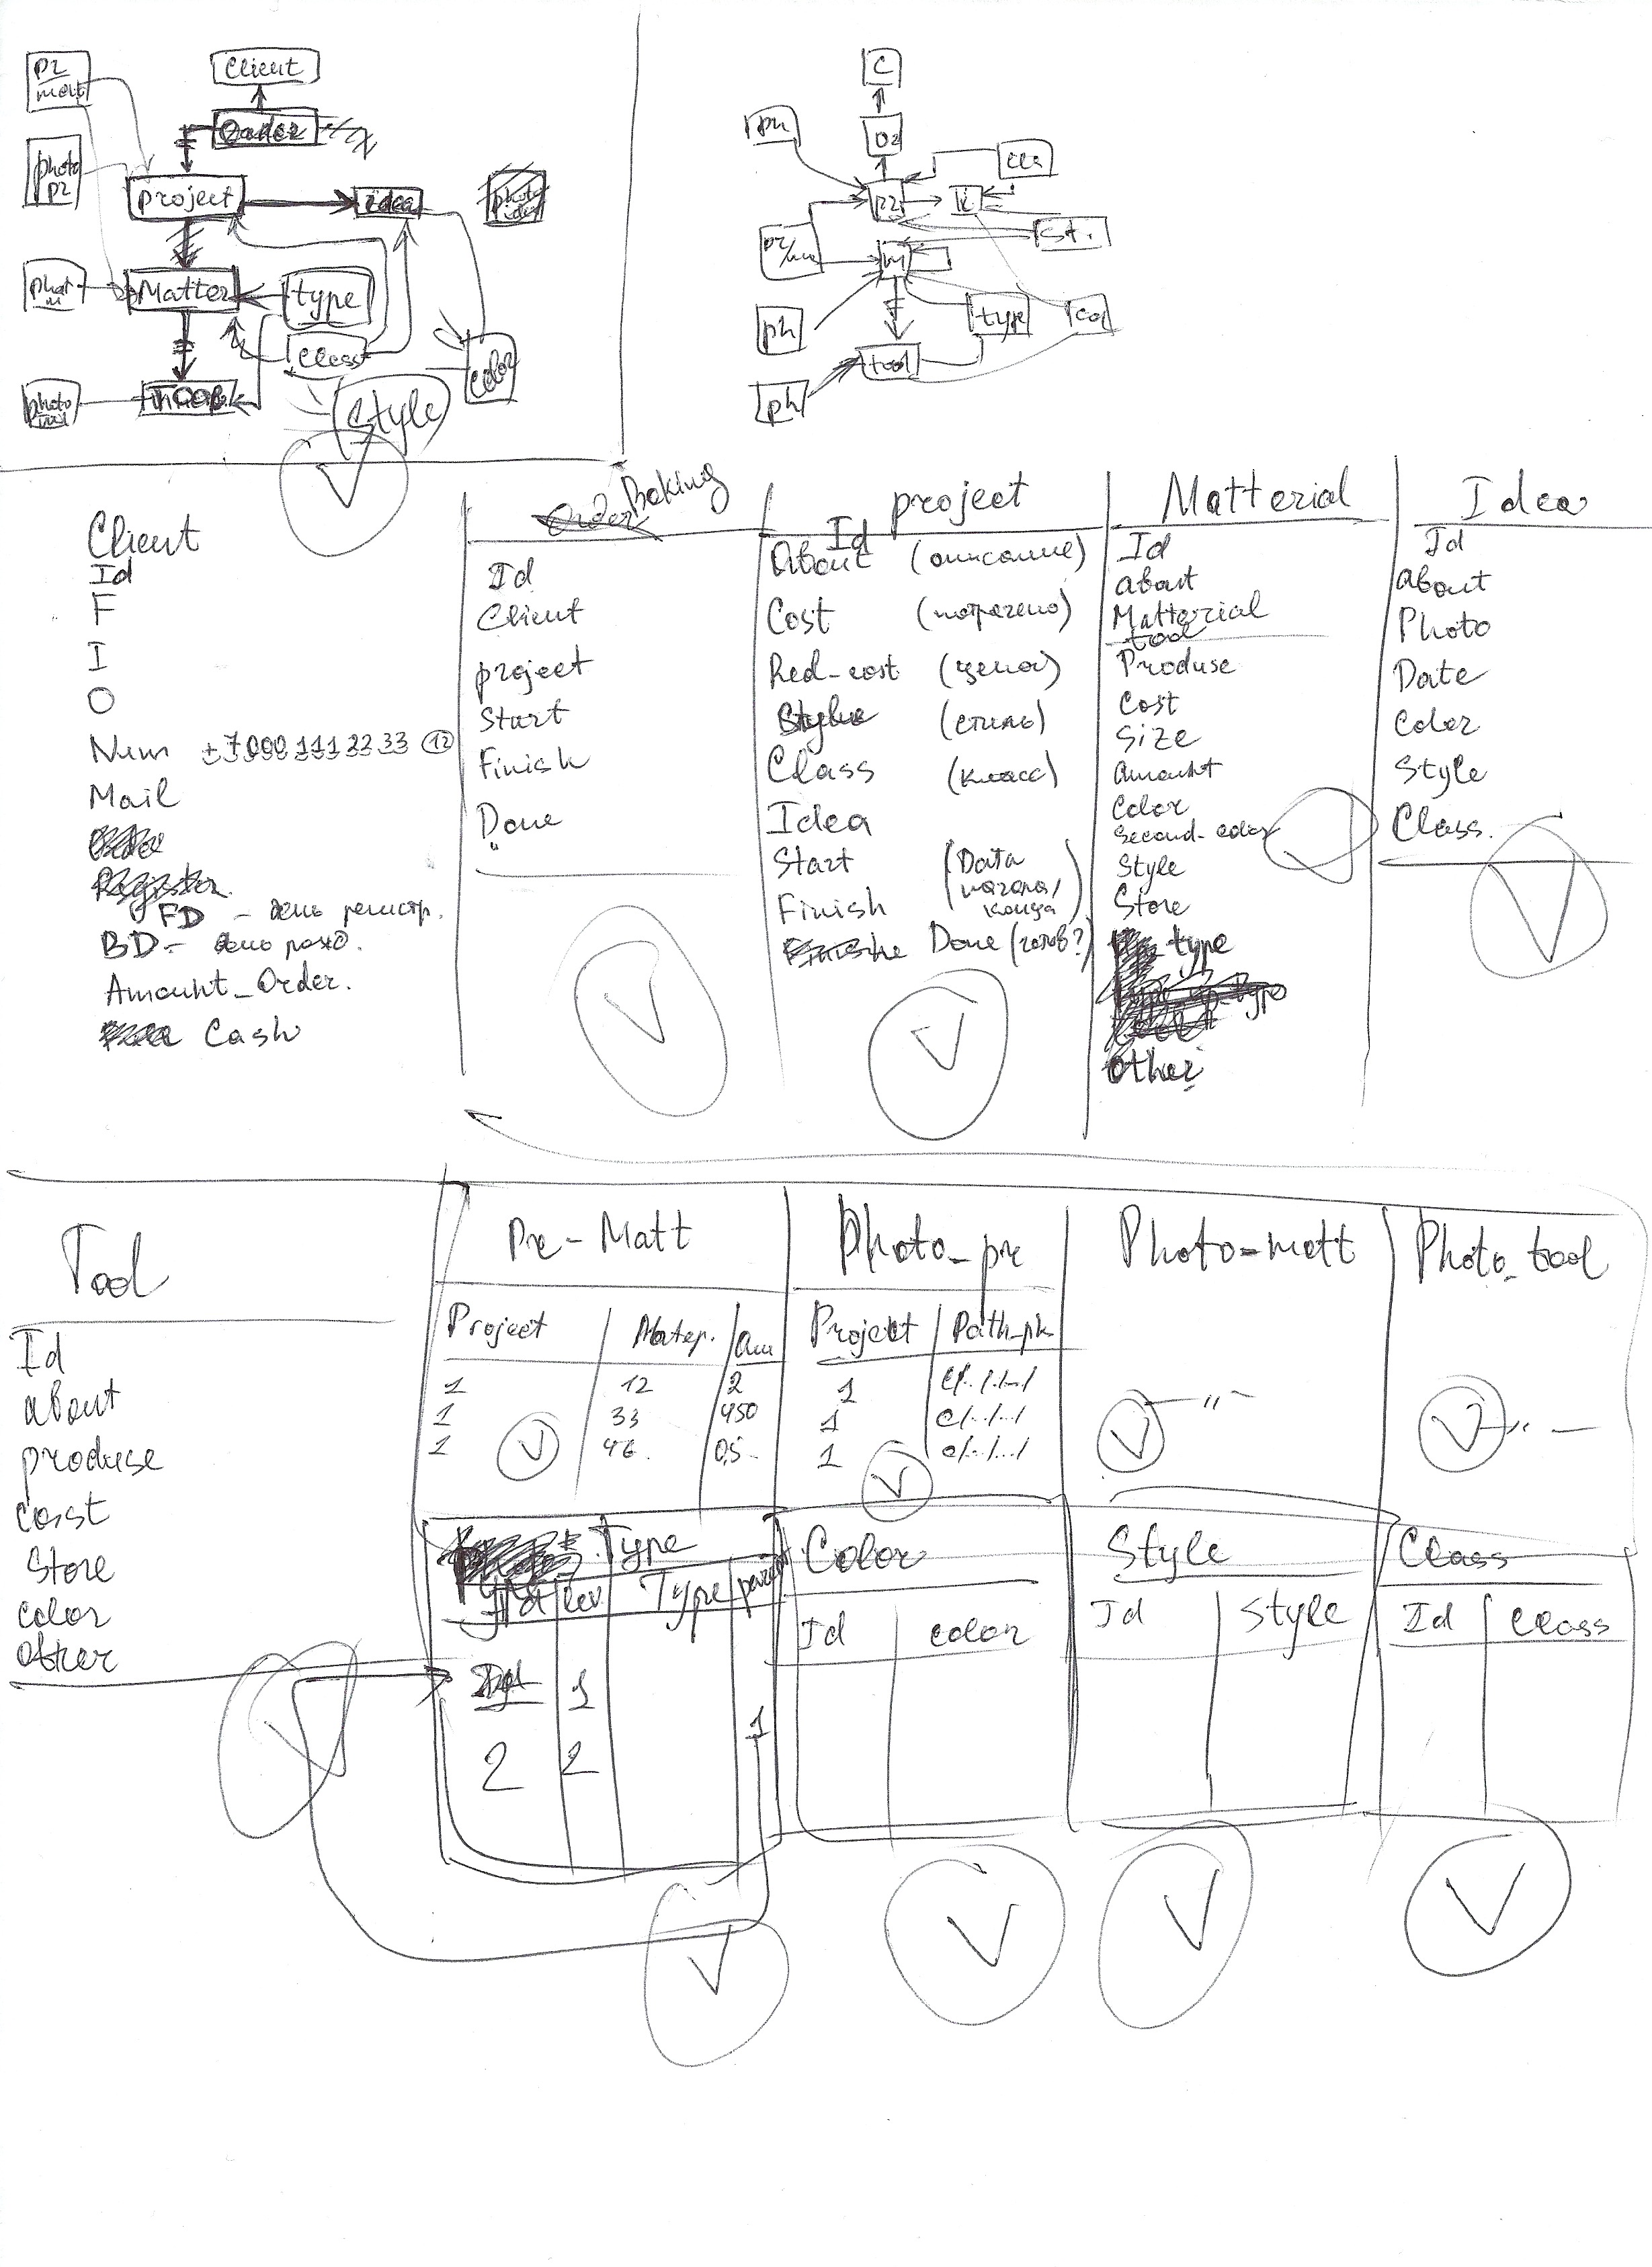 pz
matt
Client
Order
photo
pz
project
idea
photo
idea
phot
m
Matter
type
Class
color
photo
tool
Style
C
Oz
pz
St.
ph
type
col
tool
ph
Client
Id
F
I
O
Num +7 000 111 22 33 12
Mail
FD - день регистр.
BD - день рожд.
Amount_Order.
Cash
Order Boking
Id
Client
project
Start
Finish
Done
project
Id
About (описание)
Cost (потрачено)
Red-cost (цена)
Style (стиль)
Class (класс)
Idea
Start (Data
Finish начала/
конца)
Done (готов?)
Matterial
Id
about
Matterial
tool
Produse
Cost
Size
Amount
Color
Second-color
Style
Store
type
Other
Idea
Id
About
Photo
Date
Color
Style
Class.
Tool
Id
about
produse
cost
Store
color
other
Pr-Matt
Project Matер. Am
1 12 2
1 33 450
1 46. 0,5
Photo_pr
Project Path-ph
1 c/../../
1 c/../../
1 c/../../
Photo-matt
-"-
Photo_tool
-"-
Type
Id lev Type
1
2 2
1
Color
Id color
Style
Id Style
Class
Id Class